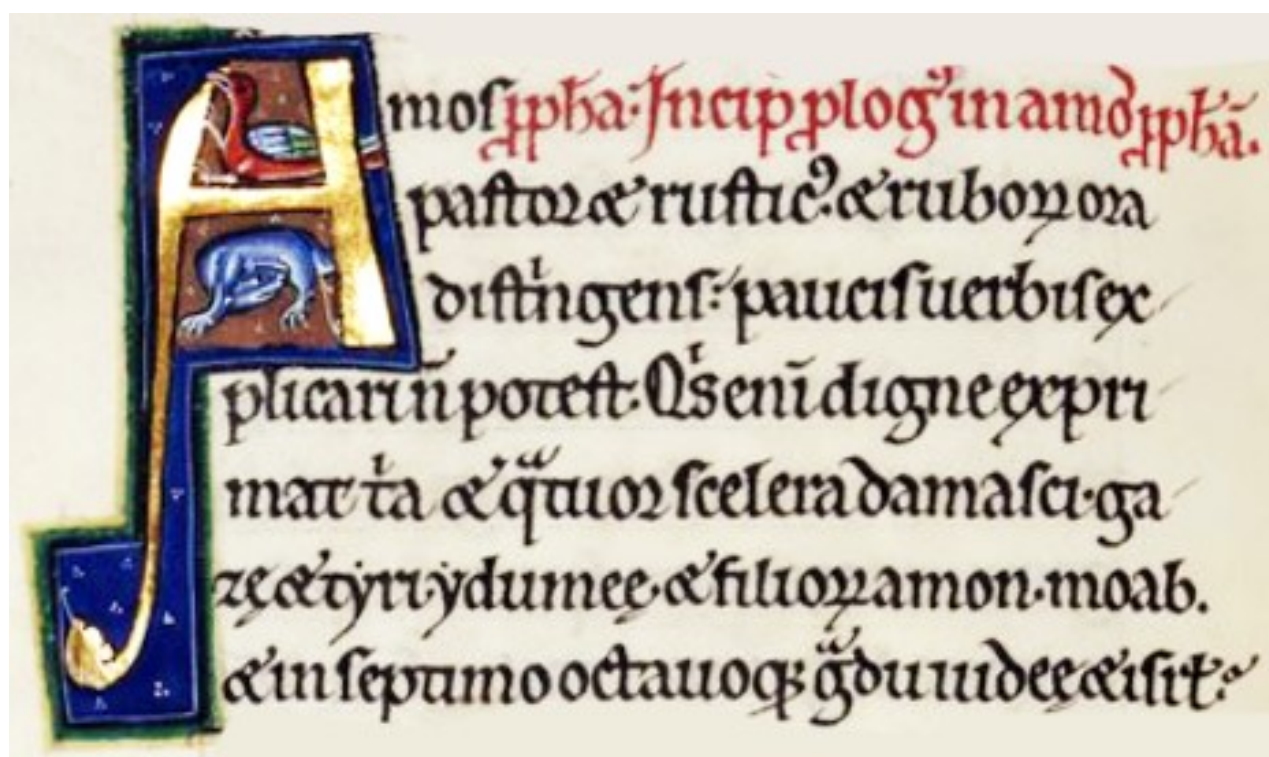 Amos ꝓph̄a. Incip̄ ꝓlogᷣ in amos ꝓph̄ā.
pastor & rusticꝰ. & ruborꝝ ora
distⁱngens: paucis uerbis ex
plicari n̄ potest. Qⁱs eni̅ digne expri
mat tⁱa & qᷓtuor scelera damasci. ga
zę & tẏri. ẏdumeę. & filiorꝝ amon. moab.
& in septimo octauoqꝫ gᷓdu iudeę & isrl̅.ᵃ